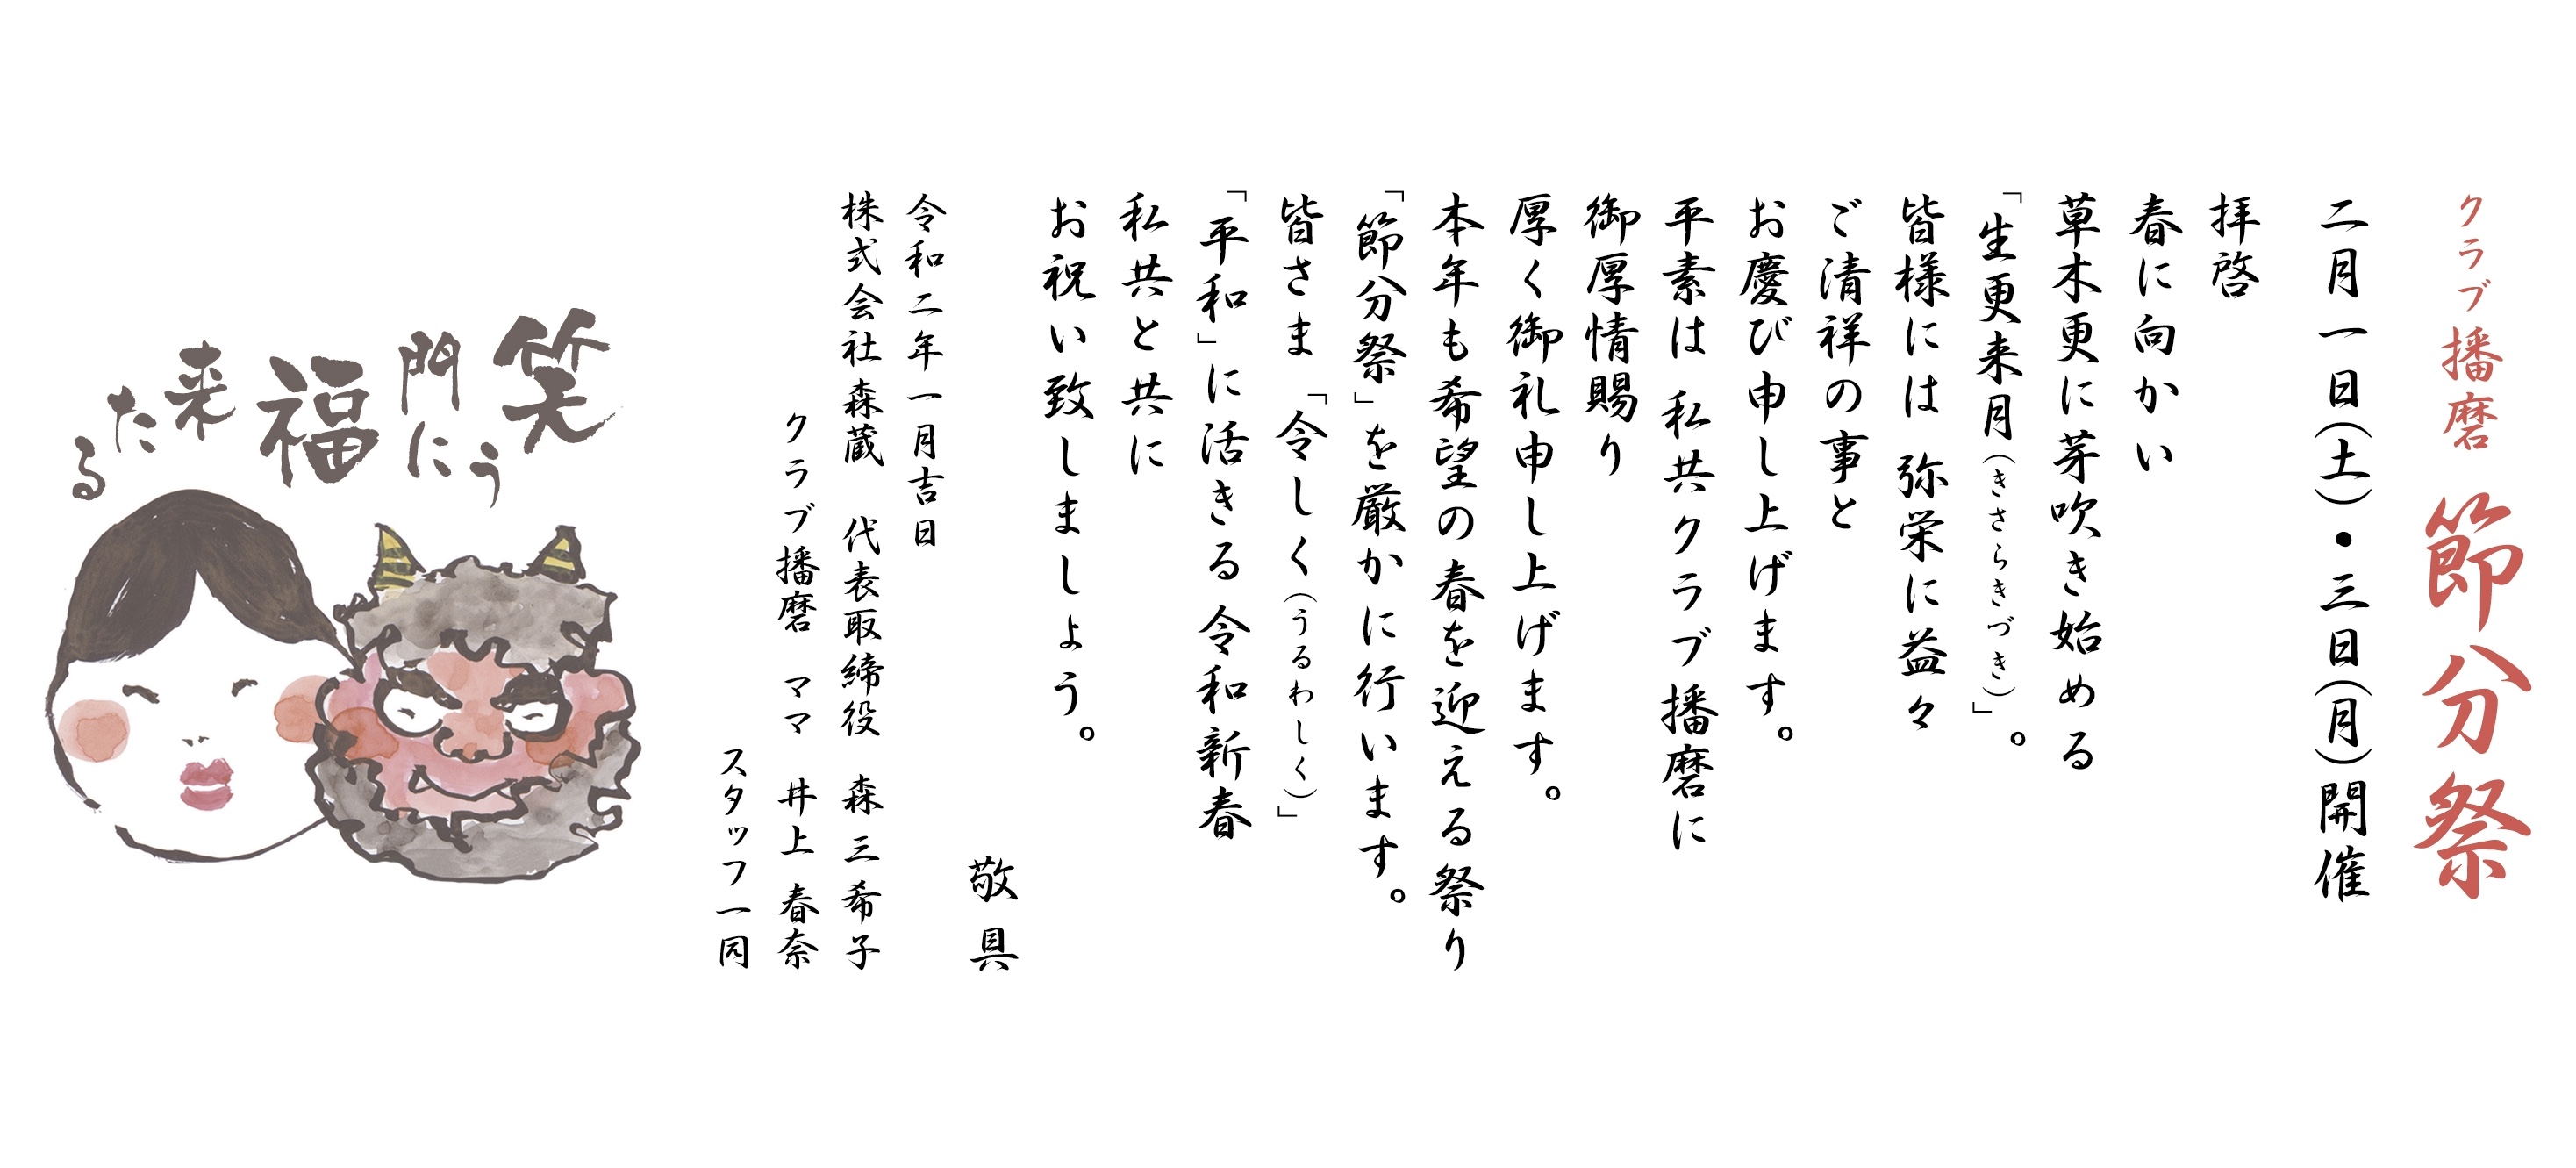 クラブ播磨 節分祭
二月一日(土)・三日(月)開催
拝啓
春に向かい
草木更に芽吹き始める
「生更来月(きさらきづき)」。
皆様には 弥栄に益々
ご清祥の事と
お慶び申し上げます。
平素は 私共クラブ播磨に
御厚情賜り
厚く御礼申し上げます。
本年も希望の春を迎える祭り
「節分祭」を厳かに行います。
皆さま「令しく(うるわしく)」
「平和」に活きる令和新春
私共と共に
お祝い致しましょう。
敬具
令和二年一月吉日
株式会社森蔵 代表取締役 森三希子
クラブ播磨 ママ 井上春奈
スタッフ一同
笑う
門に
福
来たる